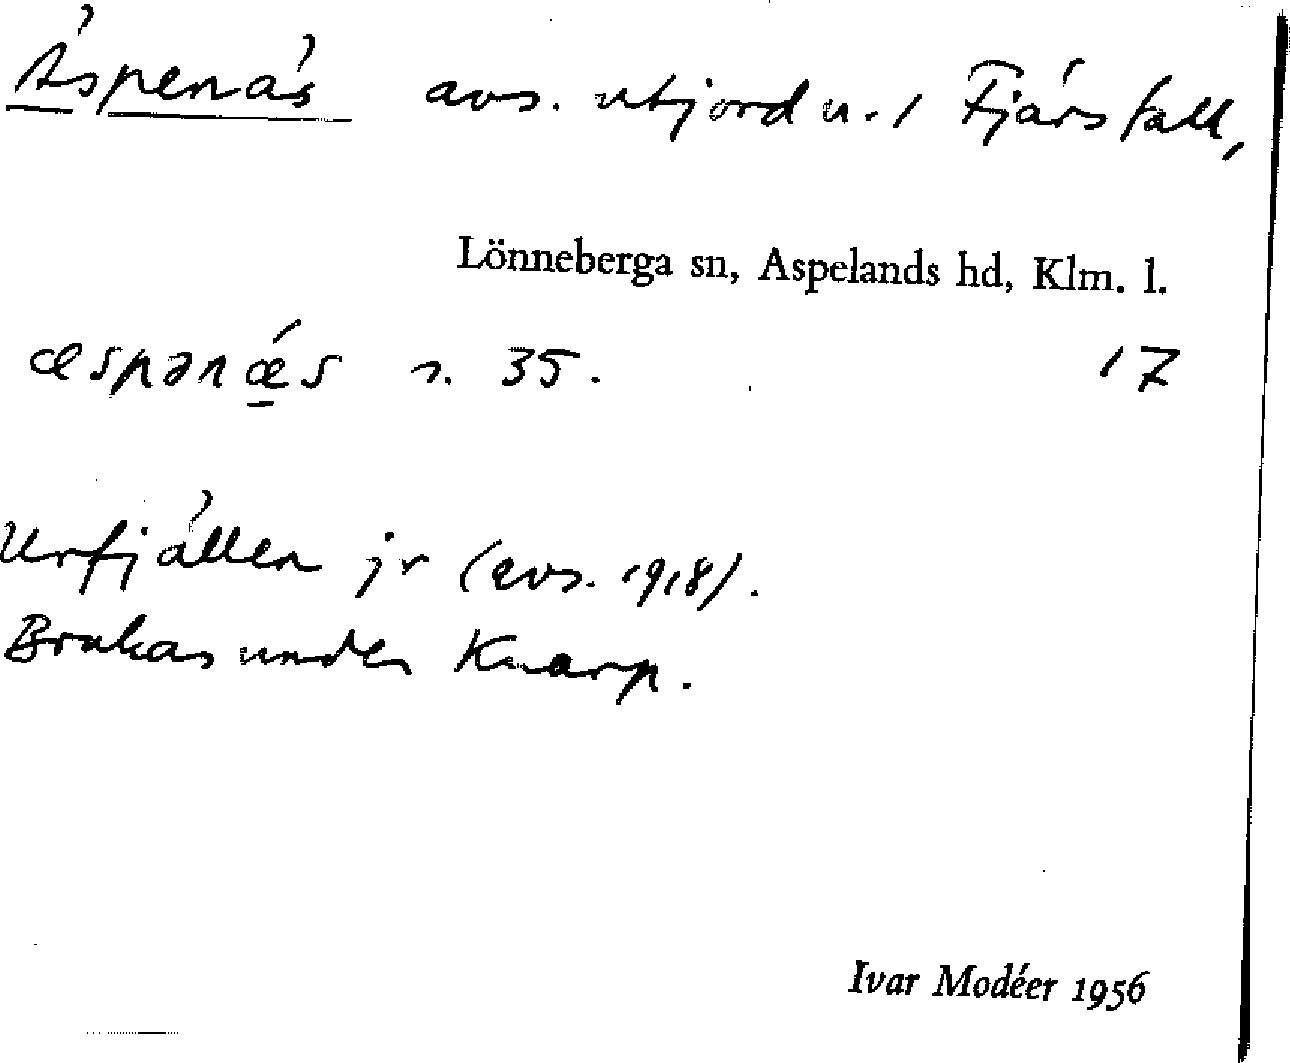 Äspenäs avs. utjord u. 1 Fjärsfall,
Lönneberga sn, Aspelands hd, Klm. l.
æspənǽs s. 35. 17
Urfjällen jr (avs. 1918).
Brukas under Knarp.
Ivar Modéer 1956